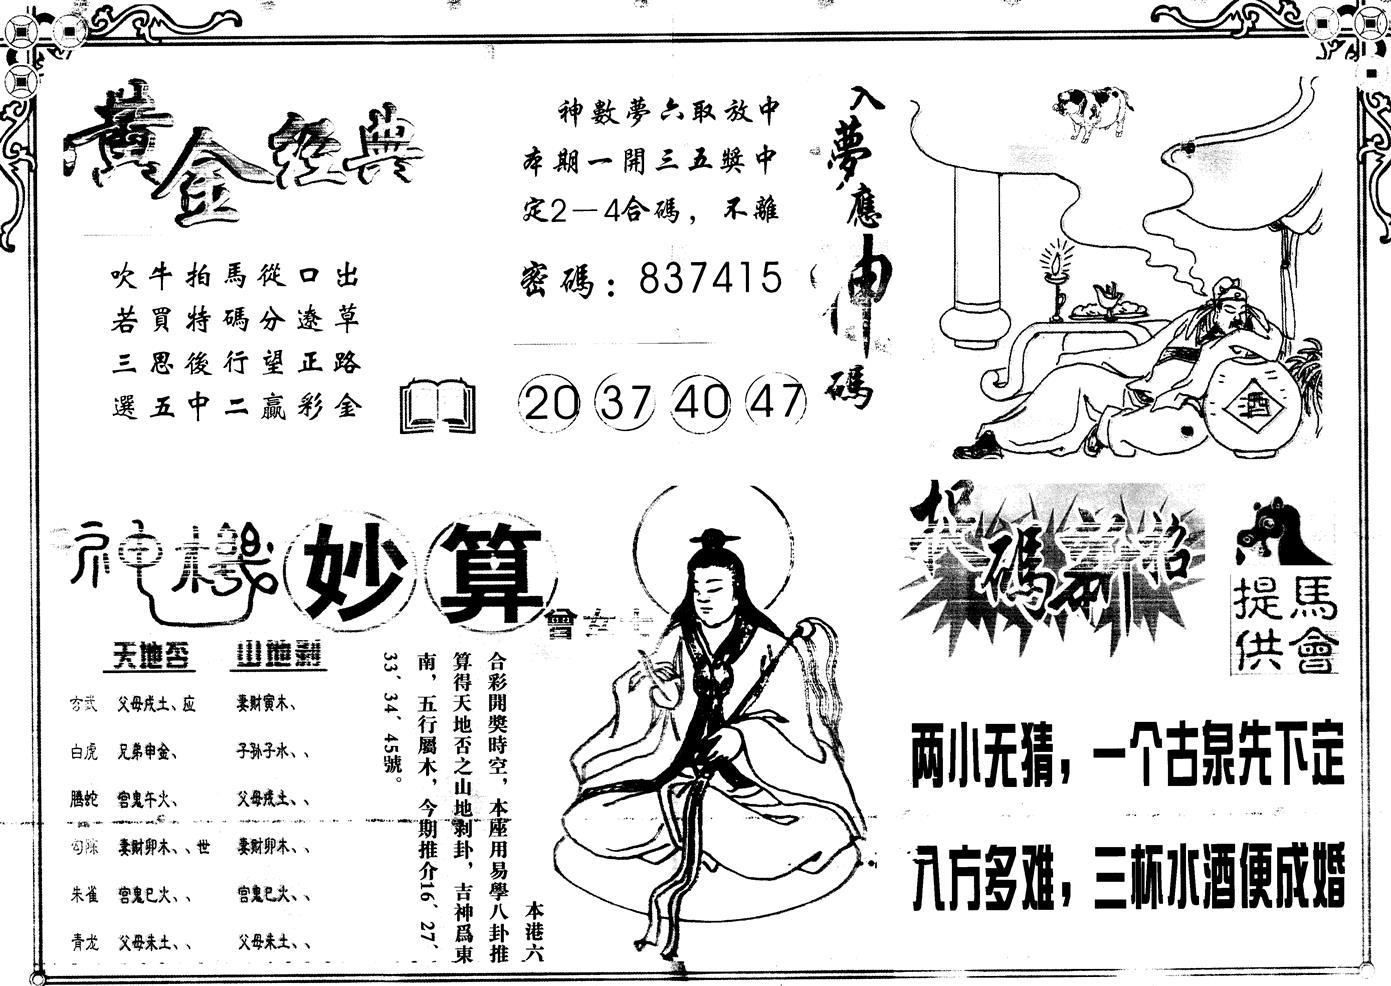 黃金經典
吹牛拍馬從口出
若買特碼分遼草
三思後行望正路
選五中二贏彩金
神數夢六取放中
本期一開三五獎中
定2－4合碼，不離
密碼：837415
20 37 40 47
入夢應神碼
酒
神機妙算
曾女士
天地否 山地剥
玄武 父母戌土、应 妻財寅木、
白虎 兄弟申金、 子孙子水、、
腾蛇 官鬼午火、 父母戌土、、
勾陈 妻財卯木、、世 妻財卯木、、
朱雀 官鬼巳火、、 官鬼巳火、、
青龙 父母未土、、 父母未土、、
本港六
合彩開獎時空，本座用易學八卦推
算得天地否之山地剥卦，吉神爲東
南，五行屬木，今期推介16、27、
33、34、45號。
碼新招
馬會
提供
两小无猜，一个古泉先下定
八方多难，三杯水酒便成婚